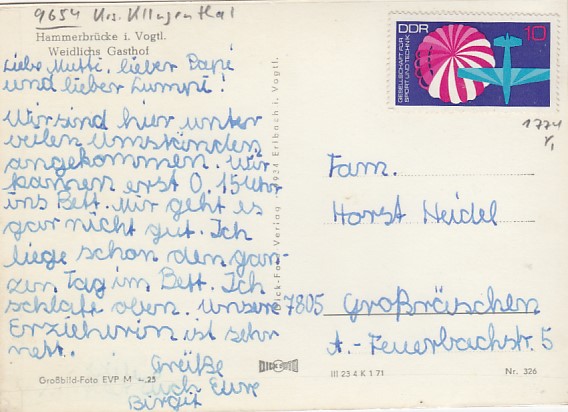 9654 Krs. Klingenthal
Hammerbrücke i. Vogtl.
Weidlichs Gasthof
Liebe Mutti, lieber Papi
und lieber Lumpi!
Wir sind hier unter
vielen Umständen
angekommen. Wir
kamen erst 0.15 Uhr
ins Bett. Mir geht es
gar nicht gut. Ich
liege schon den gan-
zen Tag im Bett. Ich
schlafe oben. Unsere
Erzieherin ist sehr
nett.
Grüße
Euch Eure
Birgit
Großbild-Foto EVP M -.25
Verlag 9934 Erlbach i. Vogtl.
DDR 10
GESELLSCHAFT FÜR
SPORT UND TECHNIK
1774
Fam.
Horst Heidel
7805 Großräschen
A.-Feuerbachstr. 5
III 23 4 K 1 71
Nr. 326